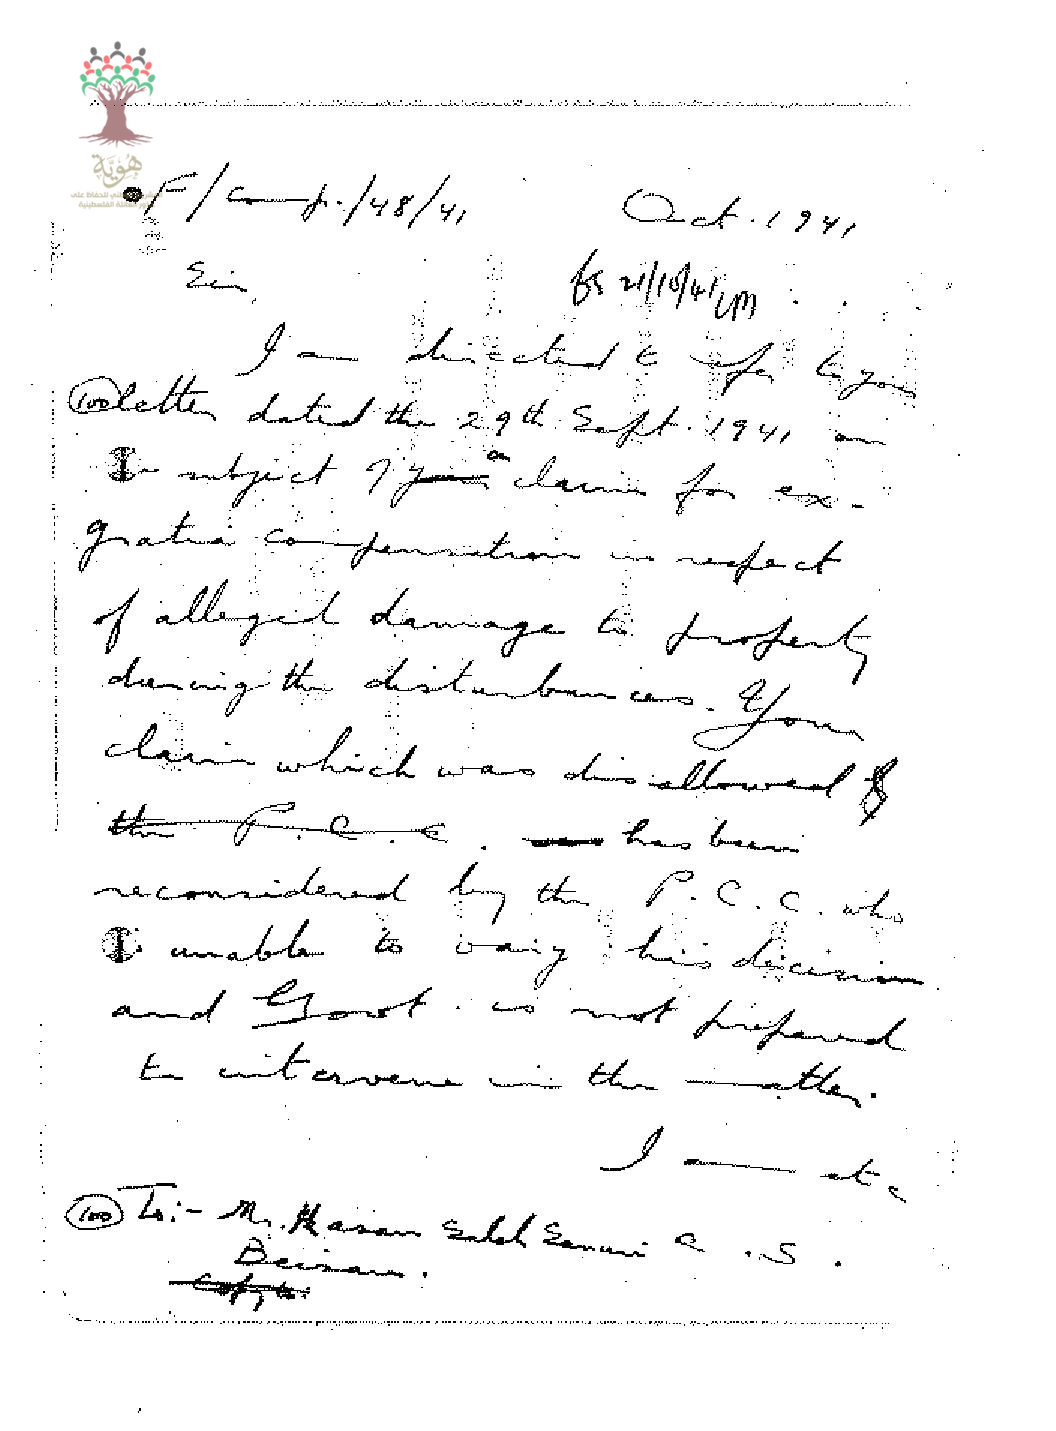 هُوِيَّة
F/Comp./48/41
Oct. 1941
Sir
fs 21/10/41
I am directed to refer to your
100 letter dated the 29th Sept. 1941 on
the subject of your a claim for ex-
gratia compensation in respect
of alleged damage to property
during the disturbances. Your
claim which was disallowed by
the P.C.C. has been
reconsidered by the P.C.C. who
is unable to vary his decision
and Govt. is not prepared
to intervene in the matter.
I am etc
100 To:- Mr. Hasan Saleh
Beisan.
Copy to: